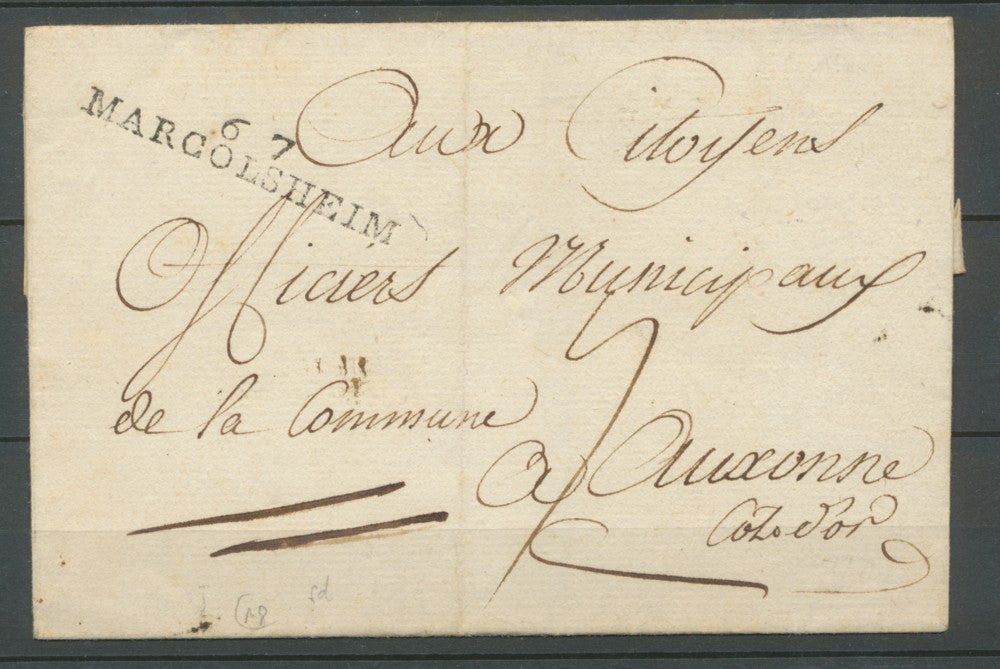 67
MARCOLSHEIM
Aux Citoyens
Officiers Municipaux
de la Commune
a Auxonne
Cote d'or